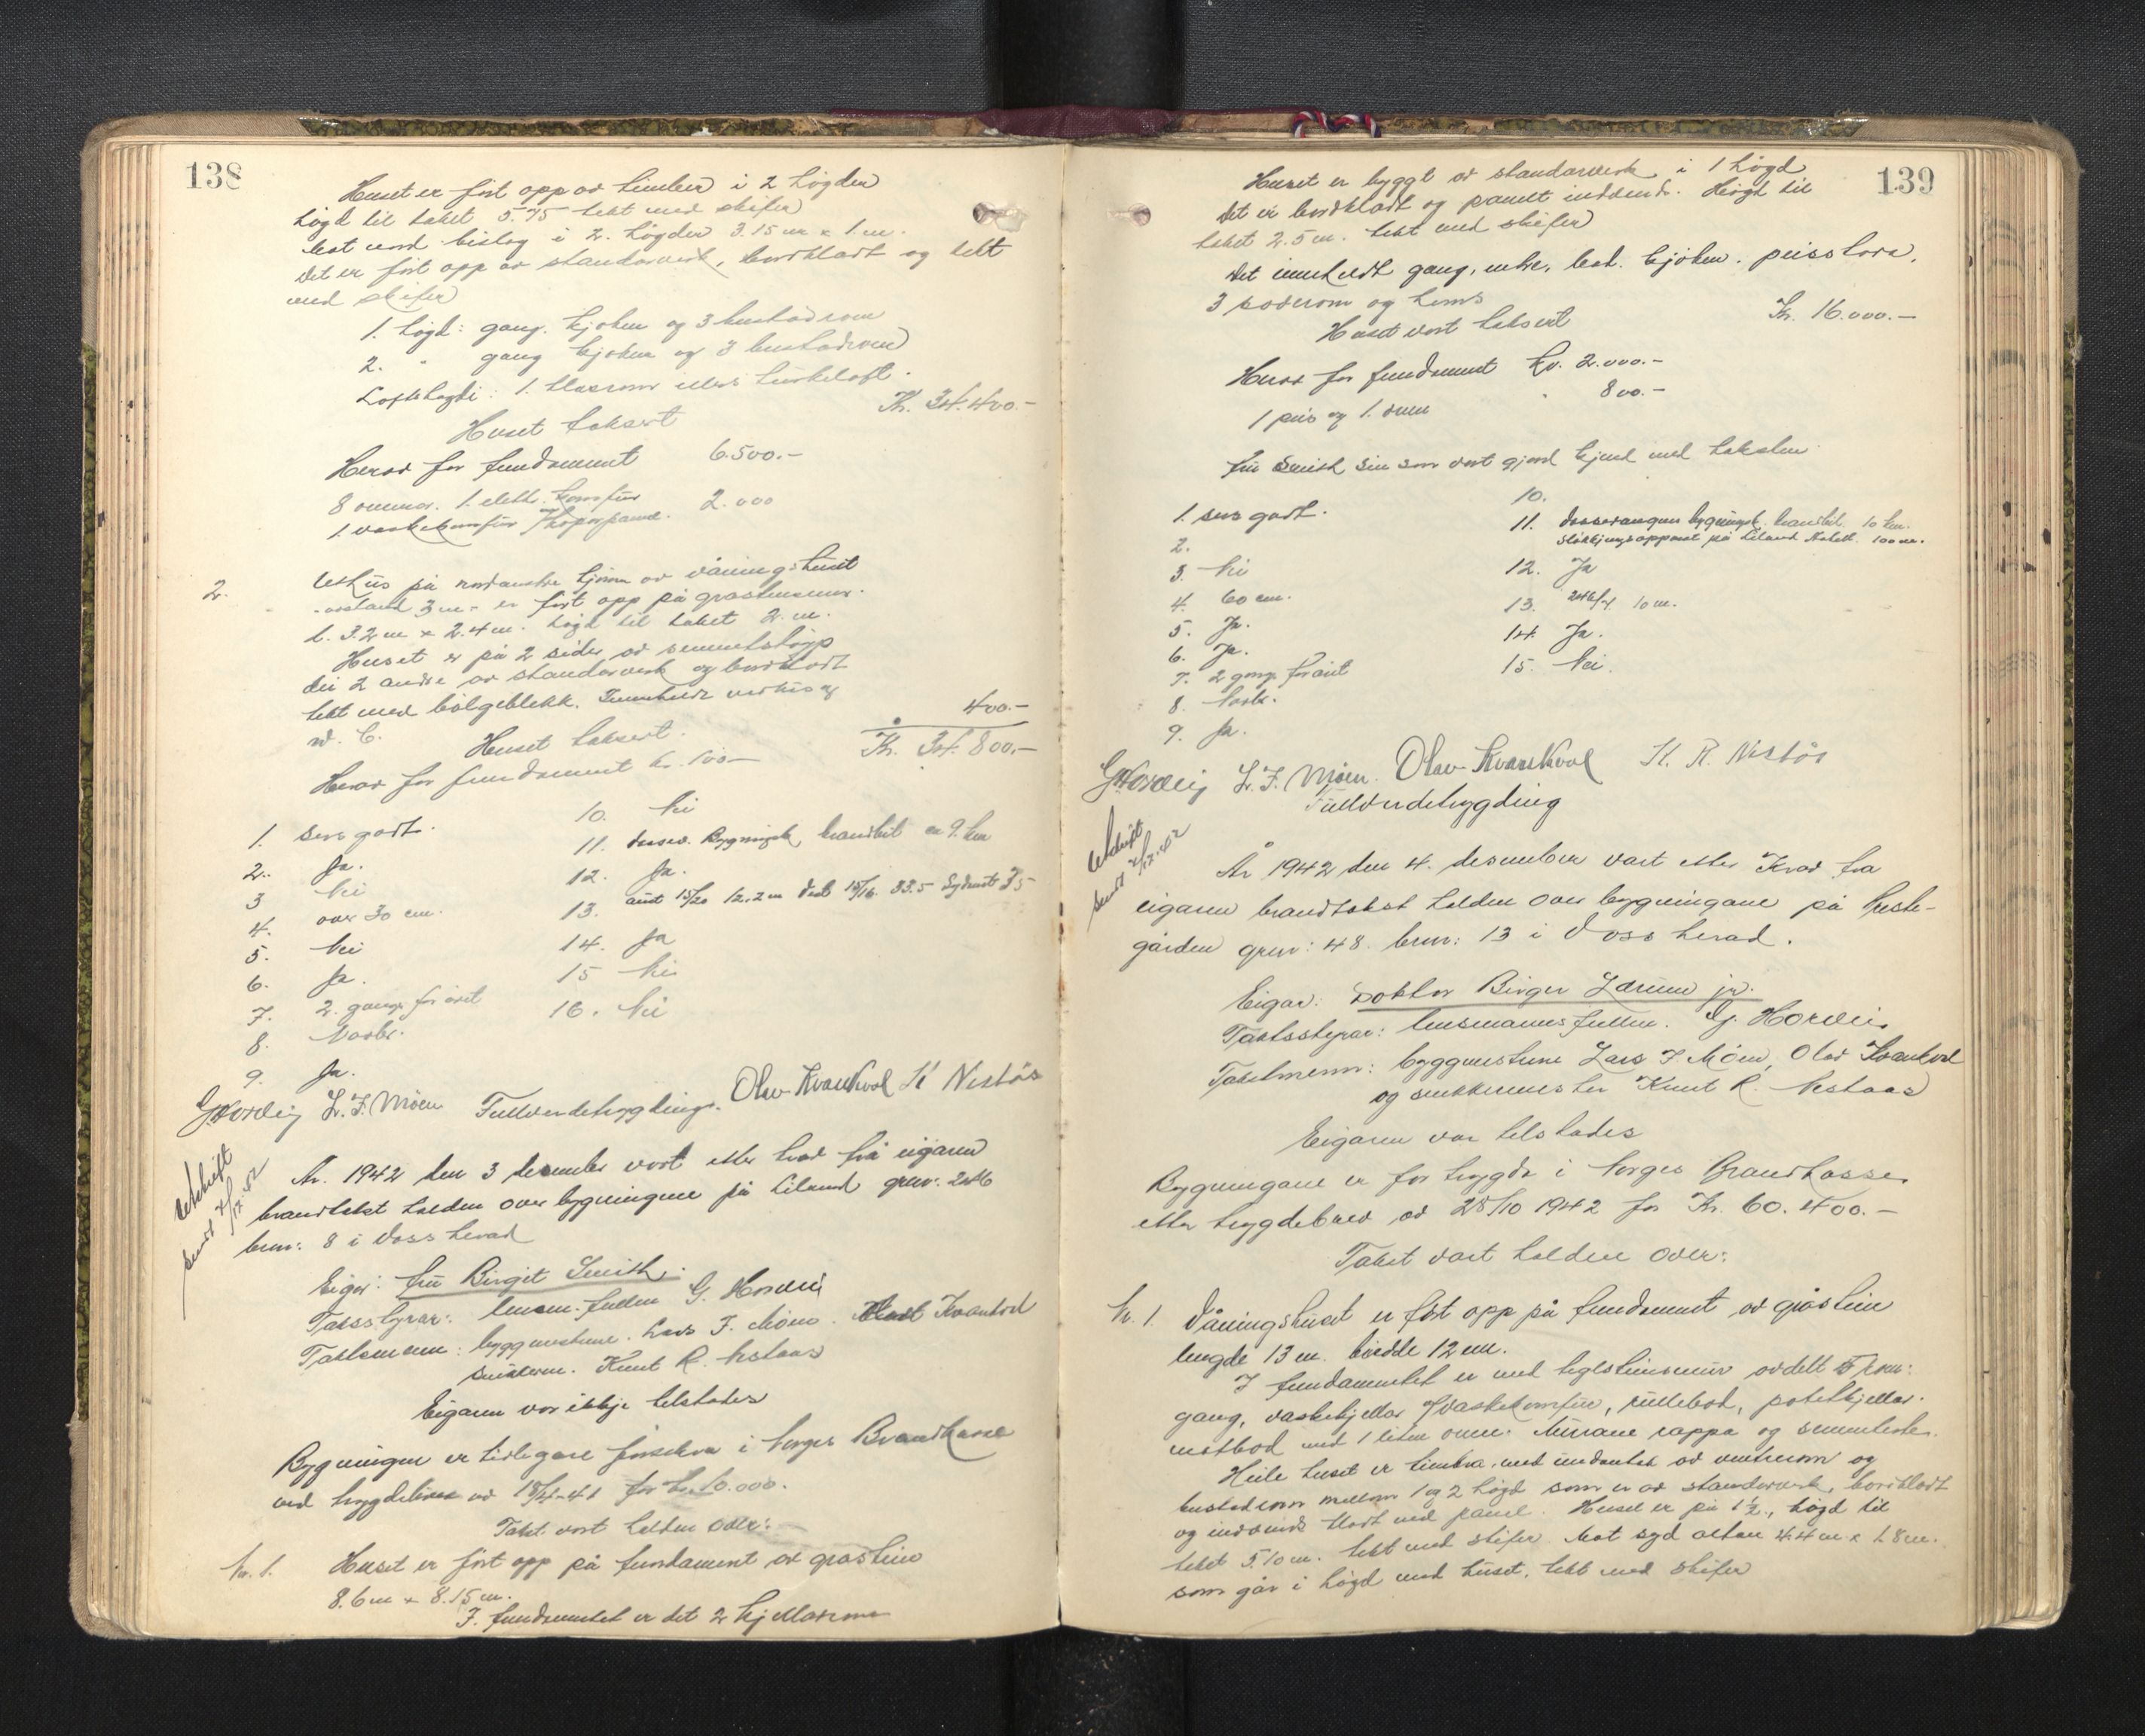 138
Huset er ført opp av timber i 2 høgder
høgd til taket 5.75 tekt med skifer
Mot nord bislag i 2. høgder 3.15 m x 1. m.
Det er ført opp av standarverk, bordkledt og tekt
med skifer
1. høgd: gang. kjøken og 3 bustadrom
2. " gang kjøken og 3 bustadrom
Loftshøgdi: 1. kleerom ellers turkeloft.
Huset taksert Kr. 34.400.-
Herav for fundament 6.500.-
8 omnar. 1. elektr. komfur
1 vaskekomfur m/koparpanne. 2.000
2. Uthus på nordaustre hjørna av våningshuset
avstand 3 m - er ført opp på grasteinsmur.
l. 3.2 m x 2.4 m. høgd til taket 2. m.
Huset er på 2 sider av sementstøyp
dei 2 andre av standarverk og bordkledt
tekt med bølgeblekk. Inneheld vedhus og
W.C. 400.-
Huset taksert. Kr. 34.800.-
Herav for fundament kr. 100.-
1. Sers godt. 10. Nei
2. Ja. 11. Vossev. Bygningsk. brandbil ca 9. km
3 Nei 12. Ja.
4. over 30 cm. 13. aust 15/20 12.2 m Vest 15/16. 33.5 Syd
5. Nei 14. Ja
6. Ja. 15 Nei
7. 2. gang. for året 16. Nei
8. Norsk.
9. Ja.
G Horvei L. F. Møen Olav Kvarekval K Nestås
Fullverdetrygding.
Utskrift sendt 7/12-42
År. 1942 den 3 desember vart etter krav frå eigaren
brandtakst halden over bygningane på Liland grnr: 246
brnr: 8 i Voss herad
Eigar: fru Birgit Smith.
Takststyrar: lensm. fullm G. Horvei
Takstmenn: byggmeistrane. Lars F. Møen. Olav Kvarekval
snikkerm. Knut R. Nestaas
Eigaren var ikkje tilstades
Bygningen er tidlegare forsikra i Norges Brandkasse
ved trygdebrev av 18/4-41 for kr. 10.000.
Takst vart halden over:
Nr. 1. Huset er ført opp på fundament av grastein
8.6 m x 8.15 m.
I fundamentet er det 2 kjellarrom
139
Huset er byggt av standarverk i 1 høgd
Det er bordkledt og panelt innvendi. Høgd til
taket 2.5 m. tekt med skifer
Det inneheldt gang, entre, bad. kjøken. peisstova,
3 soverom og hems
Huset vart taksert Kr. 16.000.-
Herav for fundament kr. 2.000.-
1 peis og 1. omn " 800.-
Fru Smith sin son vart gjord kjend med taksten.
1. sers godt. 10.
2. 11. Vossevangen bygningsk. brandbil 10 km.
sløkkjingsapparat på Liland Hotell. 100 m.
3. Nei 12. Ja
4. 60 cm. 13. 246/4 10 m.
5. Ja. 14. Ja.
6. Ja. 15. Nei.
7. 2 gong. for året
8. Norsk.
9. Ja.
G Horvei L. F. Møen. Olav Kvarekval K. R. Nestås
Fullverdetrygding
Utskrift sendt 7/12-42
År 1942 den 4. desember vart etter krav fra
eigaren brandtakst halden over bygningane på Preste-
gården grnr: 48. brnr: 13 i Voss herad.
Eigar: Doktor Birger Lærum jr.
Takststyrar: lensmannsfullm. G. Horvei.
Takstmenn: byggmeistrane Lars F. Møen, Olav Kvarekval
og snikkermester Knut R. Nestaas
Eigaren var tilstades
Bygningane er for trygda i Norges Brandkasse
etter trygdebrev av 28/10 1942 for Kr. 60.400.-
Takst vart halden over:
Nr. 1. Våningshuset er ført opp på fundament av gråstein
lengde 13 m. breidde 12 m.
I fundamentet er med teglsteinsmur avdelt 5 rom:
gang, vaskekjellar m/vaskekomfur, rullebod, potetkjellar.
matbod med 1 liten omn. Murane rappa og sementerte.
Heile huset er timbra, med undantak av ventrum og
bustadrom mellom 1 og 2 høgd som er av standarverk, bordkledt
og innvendi kledt med panel. Huset er på 1½, høgd til
taket 5.10 m. tekt med skifer Mot syd altan 4.4 m x 1.8 m.
som går i høgd med huset, tekt med skifer